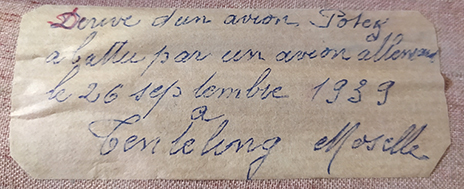 Derive d'un avion Potez
abattu par un avion allemand
le 26 septembre 1939
a
Tenteling Moselle